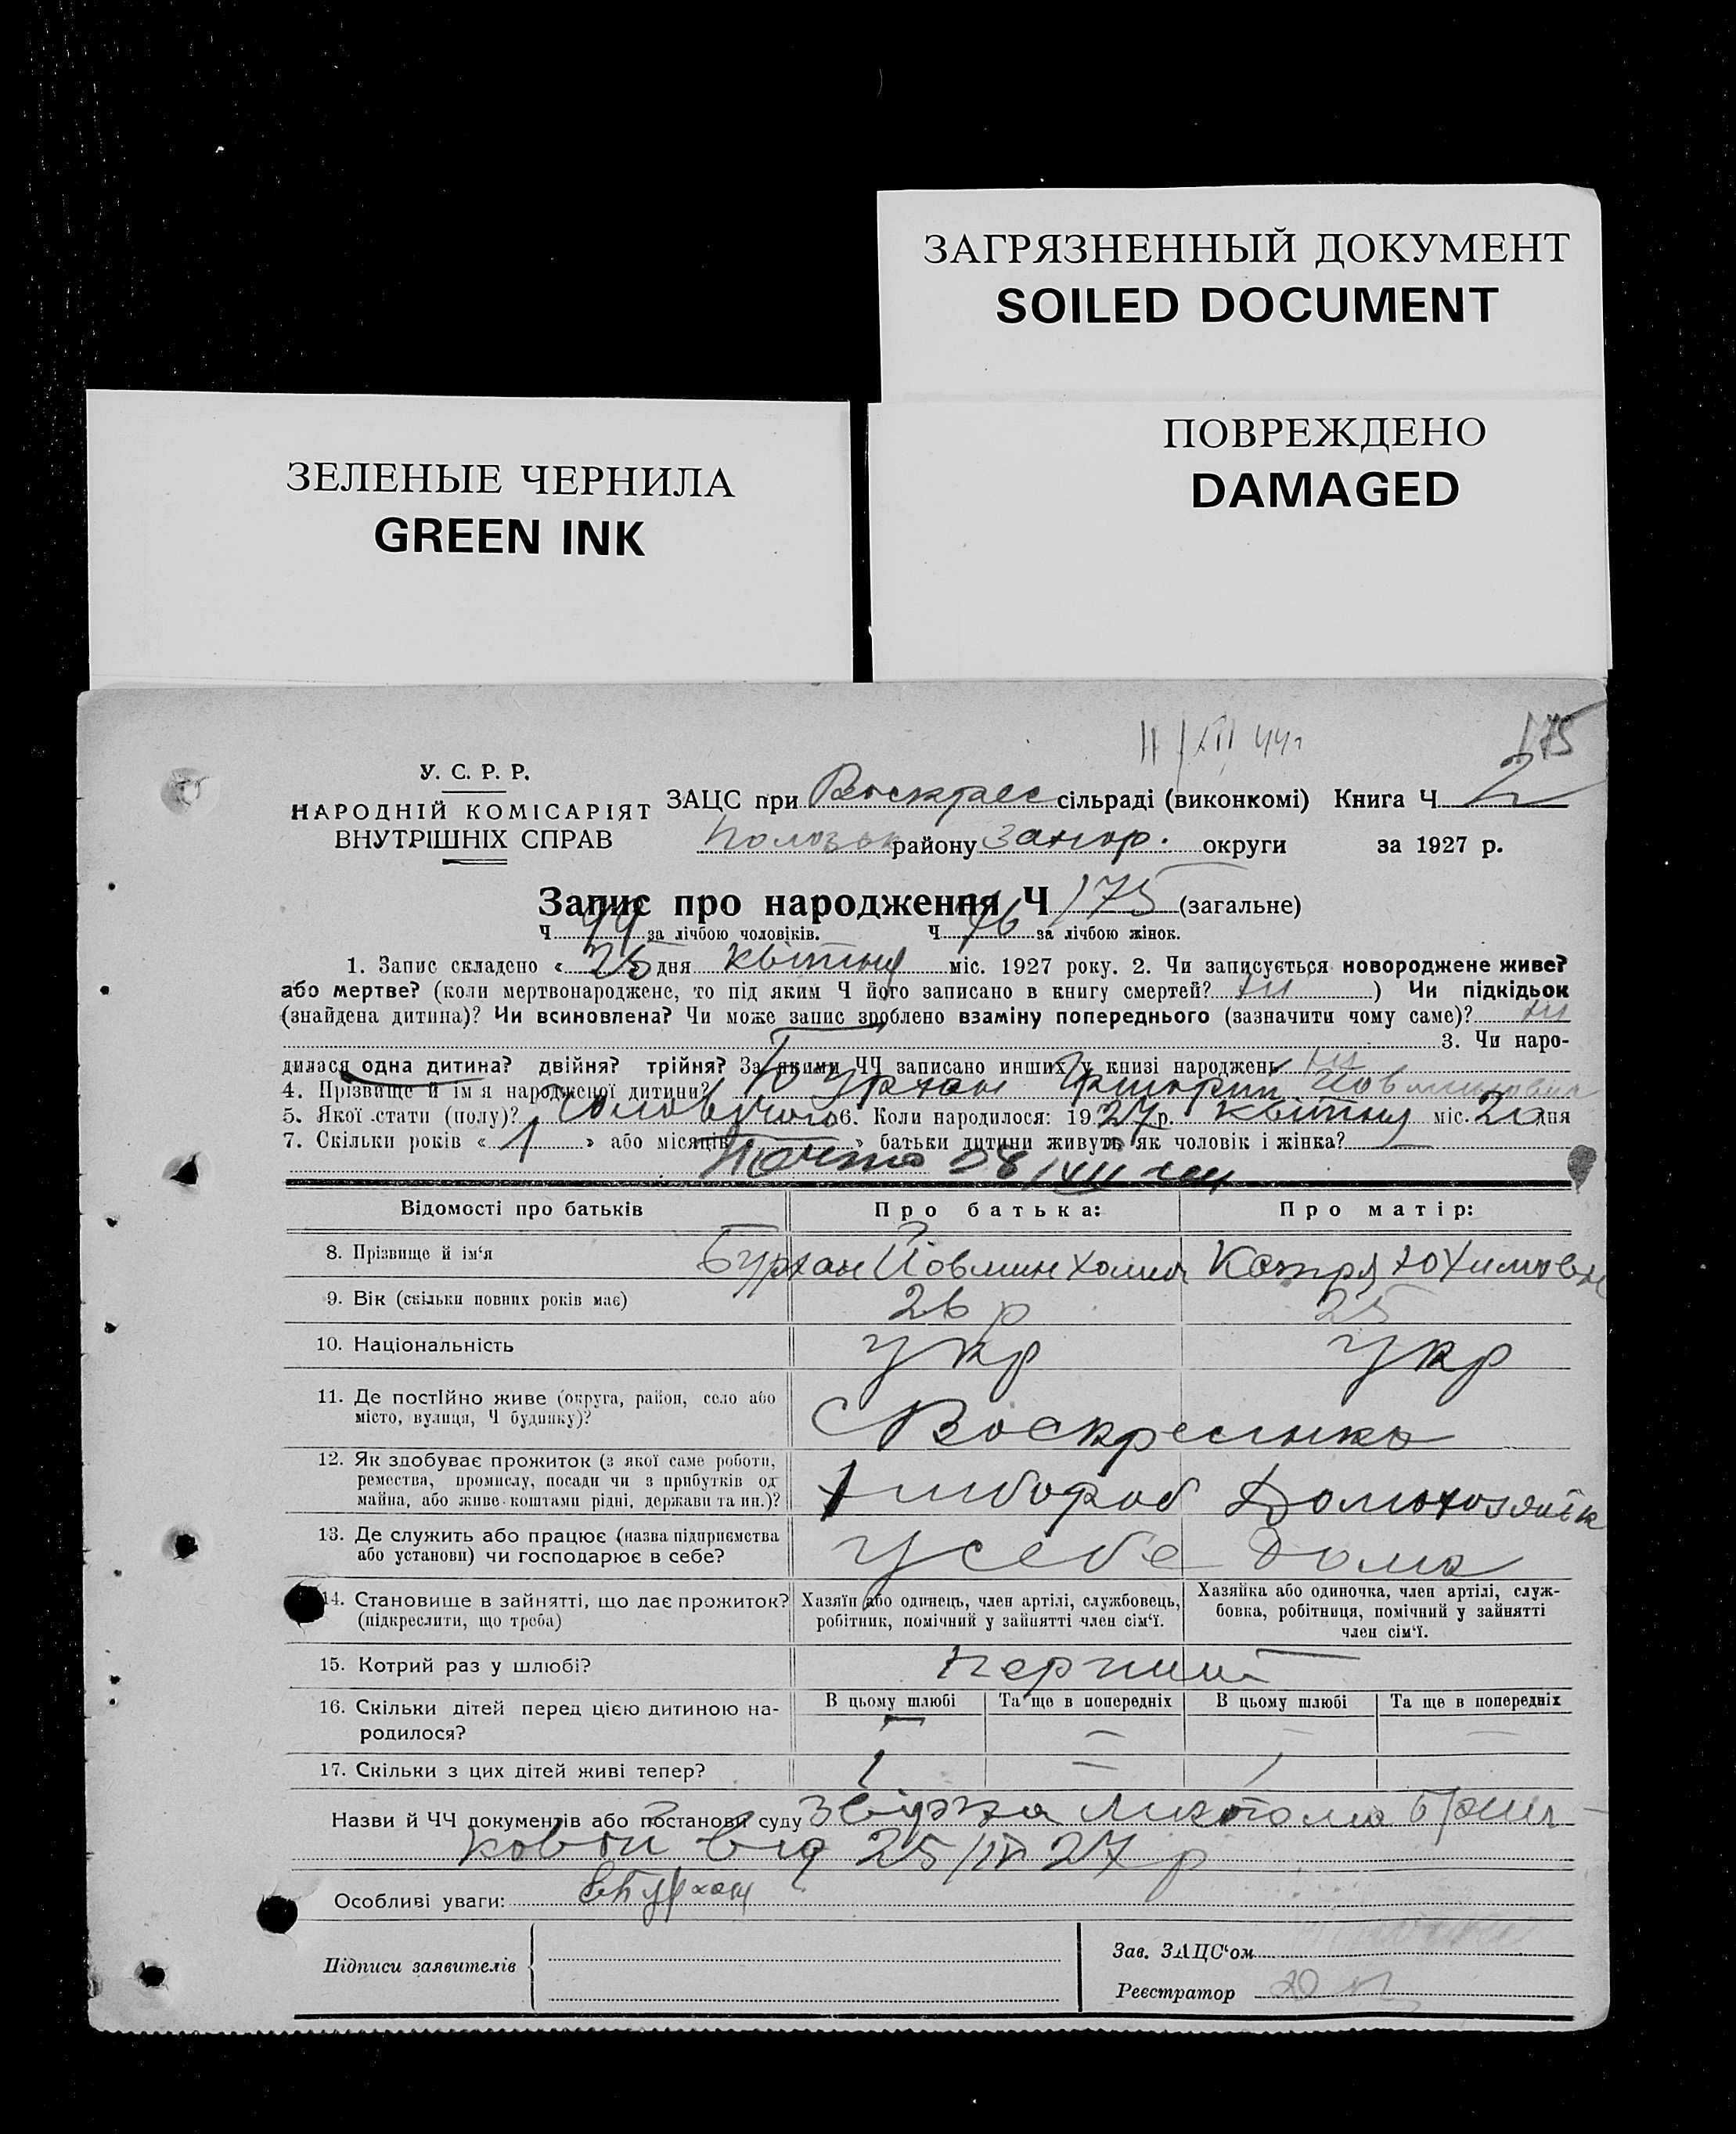 ЗАГРЯЗНЕННЫЙ ДОКУМЕНТ
SOILED DOCUMENT
ПОВРЕЖДЕНО
DAMAGED
ЗЕЛЕНЫЕ ЧЕРНИЛА
GREEN INK
175
У. С. Р. Р.
НАРОДНІЙ КОМІСАРІЯТ
ВНУТРІШНІХ СПРАВ
ЗАЦС при Воскрес сільраді (виконкомі) Книга Ч. 2
району Запор. округи за 1927 р.
Запис про народження Ч 175 (загальне)
Ч. 99 за лічбою чоловіків. Ч. 76 за лічбою жінок.
1. Запис складено « 25 дня квітня міс. 1927 року. 2. Чи записується новороджене живе?
або мертве? (коли мертвонароджене, то під яким Ч його записано в книгу смертей? ні ) Чи підкідьок
(знайдена дитина)? Чи всиновлена? Чи може запис зроблено взаміну попереднього (зазначити чому саме)? ні
3. Чи наро-
дилася одна дитина? двійня? трійня? За якими ЧЧ записано инших у книзі народжень ні
4. Прізвище й ім'я народженої дитини? Бурхан
5. Якої стати (полу)? чоловічого 6. Коли народилося: 1927 р. квітня міс. 20 дня
7. Скільки років « 1 » або місяців » батьки дитини живуть як чоловік і жінка?
Відомості про батьків Про батька: Про матір:
8. Прізвище й ім'я Бурхан Катря Юхимовн
9. Вік (скільки повних років має) 26 р 25
10. Національність укр укр
11. Де постійно живе (округа, район, село або
місто, вулиця, Ч будинку)? С Воскресинка
12. Як здобуває прожиток (з якої саме роботи,
ремества, промислу, посади чи з прибутків од
майна, або живе коштами рідні, держави та ин.)? Хлибороб Домохозяйк
13. Де служить або працює (назва підприємства
або установи) чи господарює в себе? У себе Дома
14. Становище в зайнятті, що дає прожиток?
(підкреслити, що треба)
Хазяїн або одинець, член артілі, службовець,
робітник, помічний у зайнятті член сім'ї.
Хазяйка або одиночка, член артілі, служ-
бовка, робітниця, помічний у зайнятті
член сім'ї.
15. Котрий раз у шлюбі? перший
16. Скільки дітей перед цією дитиною на-
родилося?
В цьому шлюбі Та ще в попередніх В цьому шлюбі Та ще в попередніх
17. Скільки з цих дітей живі тепер? 1 — 1
Назви й ЧЧ документів або постанови суду
від 25/IV 27 р
Особливі уваги:
Підписи заявителів
Зав. ЗАЦС'ом
Реєстратор